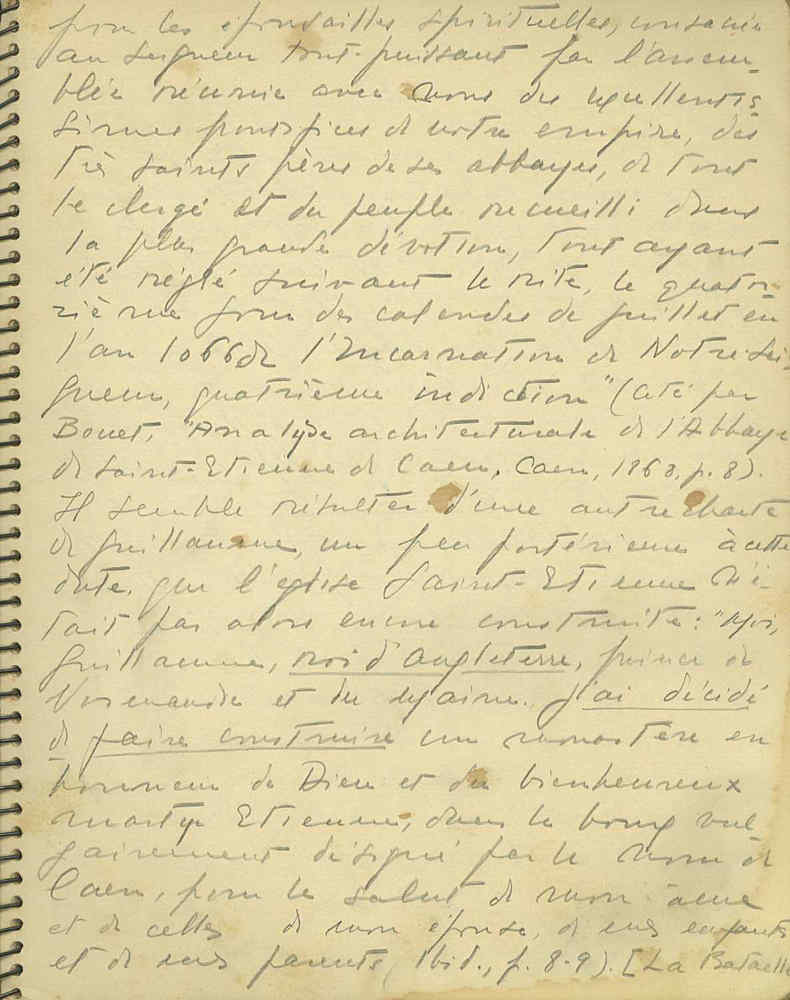 pour les épousailles spirituelles, consacrée
au Seigneur tout-puissant par l'assem-
blée réunie avec nous des excellentis-
simes pontifices de notre empire, des
très saints pères de ses abbayes, de tout
le clergé et du peuple recueilli dans
la plus grande dévotion, tout ayant
été réglé suivant le rite, le quator-
zième jour des calendes de juillet en
l'an 1066 de l'Incarnation de Notre-Sei-
gneur, quatrième indiction" (cité par
Bouet, "Analyse architecturale de l'Abbaye
de Saint-Etienne de Caen, Caen, 1868, p. 8).
Il semble résulter d'une autre charte
de Guillaume, un peu postérieure à cette
date, que l'église Saint-Etienne n'é-
tait pas alors encore construite: "Moi,
Guillaume, roi d'Angleterre, prince de
Normandie et du Maine. J'ai décidé
de faire construire un monastère en
honneur de Dieu et du bienheureux
martyr Etienne, dans le bourg vul-
gairement désigné par le nom de
Caen, pour le salut de mon âme
et de celles de mon épouse, de mes enfants
et de mes parents (Ibid., p. 8-9). [La Bataille